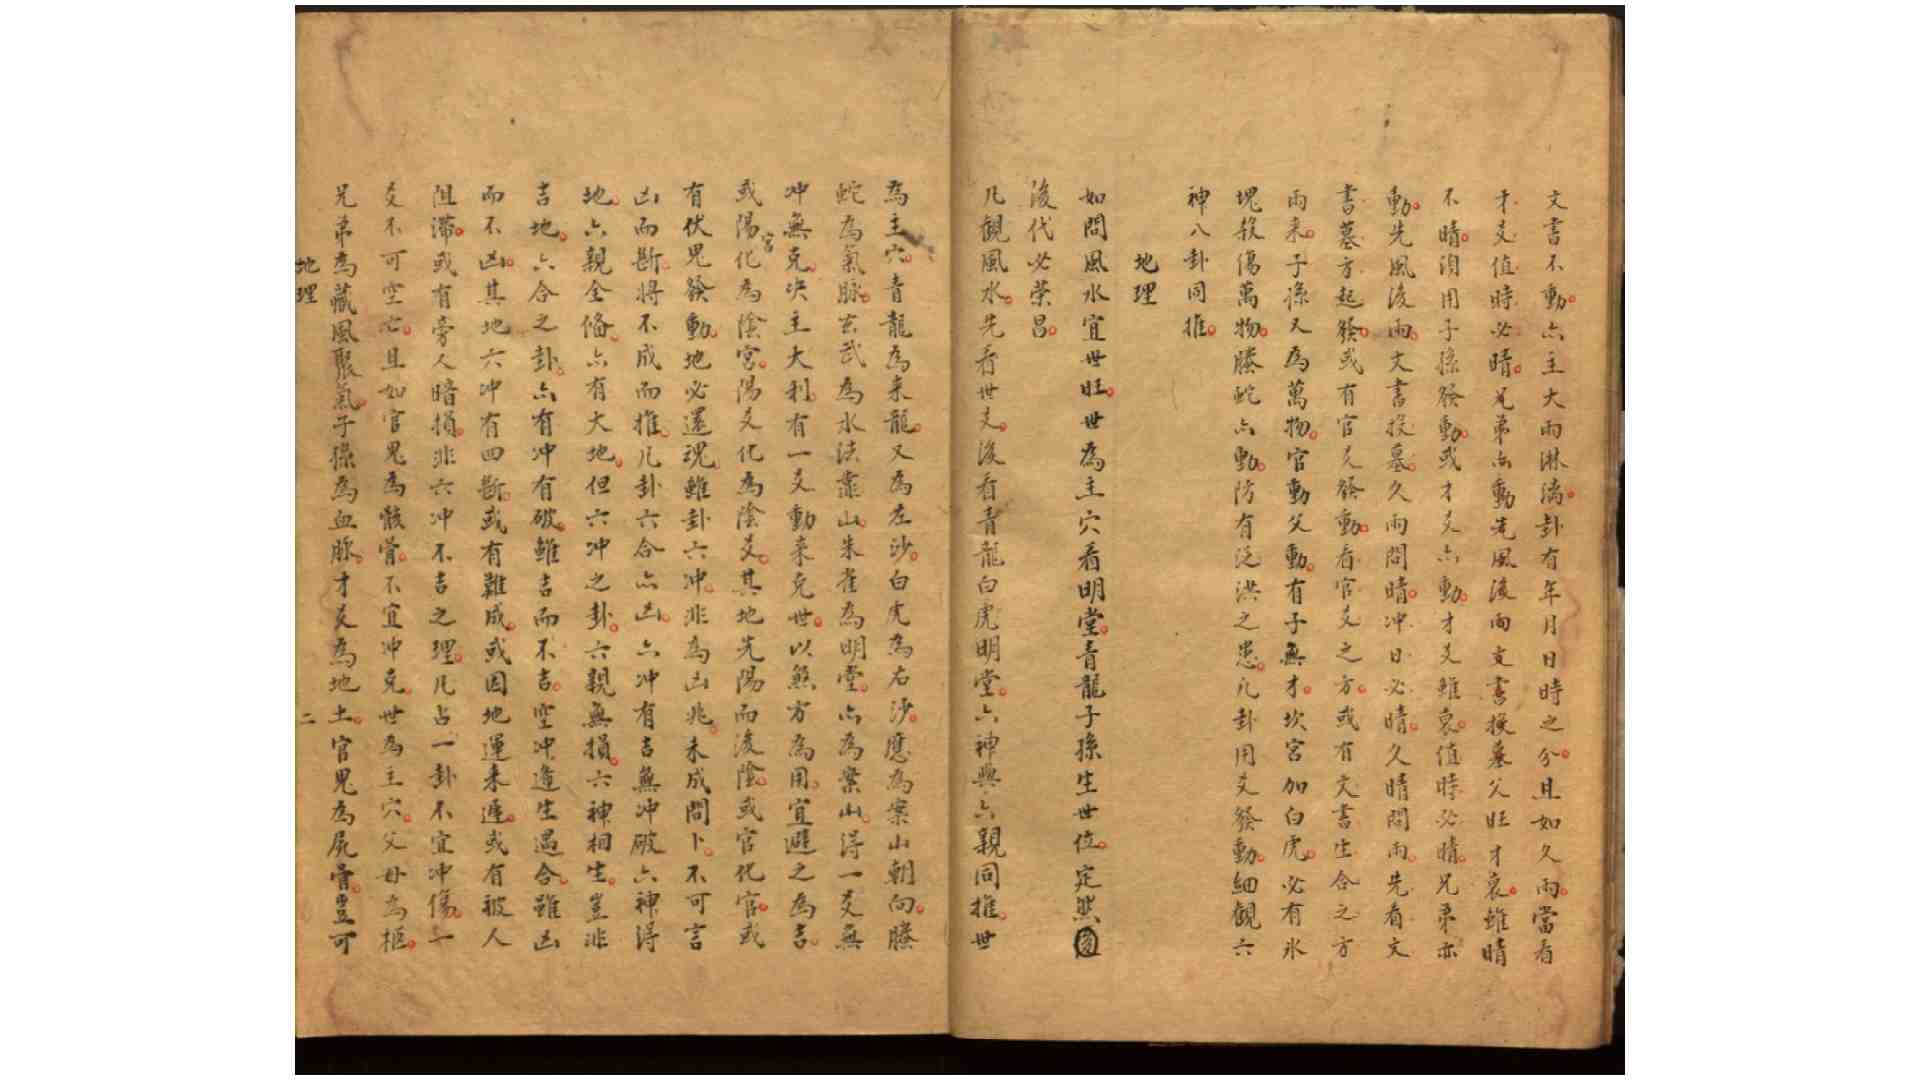 文書不動亠主大雨淋漓卦有年月日時之分且如久雨當看
才爻值時必晴兄弟亠動先風後雨文書換墓父旺才衰雖晴
不晴須用子孫發動或才爻亠動才爻雖衰值時必晴兄弟亦
動先風後雨文書投墓久雨問晴冲日必晴久晴問雨先看文
書墓方起發或有官兄發動看官爻之方或有文書生合之方
雨来子孫又為萬物官動父動有子無才坎宮加白虎必有氷
塊殺傷萬物螣蛇亠動防有泛洪之患凢卦用爻發動細観六
神八卦同推
地理
如問風水宜世旺世為主穴看明堂青龍子孫生世位定然
後代必荣昌
凢観風水先看世爻後看青龍白虎明堂六神與六親同推世
為主穴青龍為来龍又為左沙白虎為右沙應為案山朝向螣
蛇為氣脉玄武為水法靠山朱雀為明堂亠為案山得一爻無
冲無克决主大利有一爻動来克世以煞方為用宜避之為吉
或陽宮化為陰宮陽爻化為陰爻其地先陽而後陰或官化官或
有伏鬼發動地必還魂雖卦六冲非為凶兆未成問卜不可言
凶而斷將不成而推凢卦六合亠凶六冲有吉無冲破六神得
地六親全俻亠有大地但六冲之卦六親無損六神相生豈非
吉地六合之卦亠有冲有破雖吉而不吉空冲逢生遇合雖凶
而不凶其地六冲有四斷或有難成或因地運来遲或有被人
阻滞或有旁人暗損非六冲不吉之理凢占一卦不宜冲傷一
爻不可空亡且如官鬼為骸骨不宜冲克世為主穴父母為柩
兄弟為藏風聚氣子孫為血脉才爻為地土官鬼為屍骨豈可
地理 二